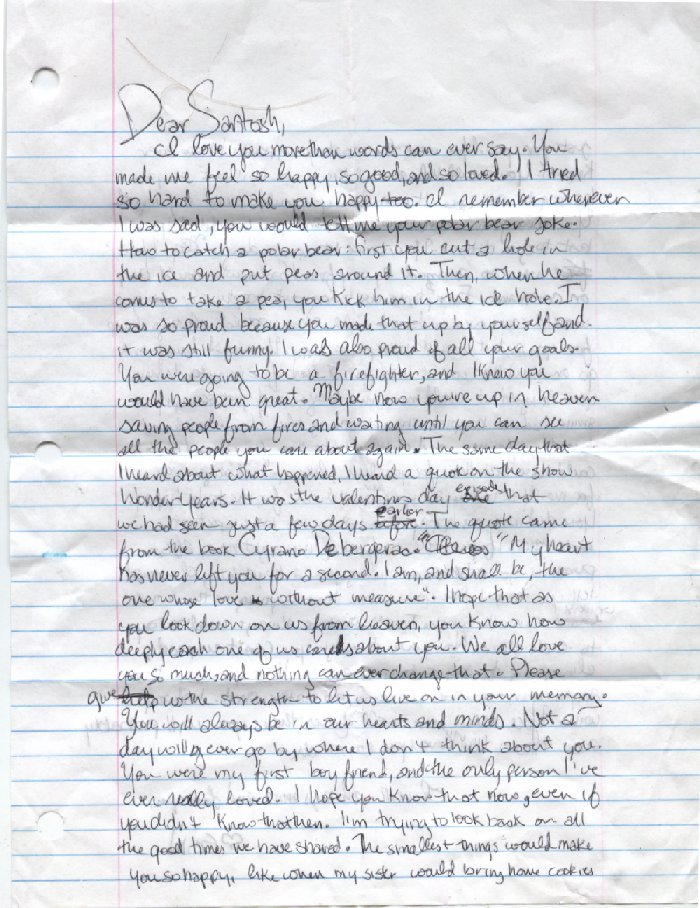 Dear Santosh,
I love you more than words can ever say. You
made me feel so happy, so good, and so loved. I tried
so hard to make you happy too. I remember whenever
I was sad, you would tell me your polar bear joke.
How to catch a polar bear: first you cut a hole in
the ice and put peas around it. Then, when he
comes to take a pea, you kick him in the ice hole. I
was so proud because you made that up by yourself and
it was still funny. I was also proud of all your goals.
You were going to be a firefighter, and I know you
would have been great. Maybe now you're up in heaven
saving people from fires and waiting until you can see
all the people you care about again. The same day that
I heard about what happened, I heard a quote on the show
Wonder Years. It was the valentines day episode that
we had seen just a few days earlier. The quote came
from the book Cyrano De bergerac. "My heart
has never left you for a second. I am, and shall be, the
one whose love is without measure". I hope that as
you look down on us from heaven, you know how
deeply each one of us cares about you. We all love
you so much, and nothing can ever change that. Please
give us the strength to let us live on in your memory.
You will always be in our hearts and minds. Not a
day will ever go by where I don't think about you.
You were my first boyfriend, and the only person I've
ever really loved. I hope you know that now, even if
you didn't know that then. I'm trying to look back on all
the good times we have shared. The smallest things would make
you so happy, like when my sister would bring home cookies